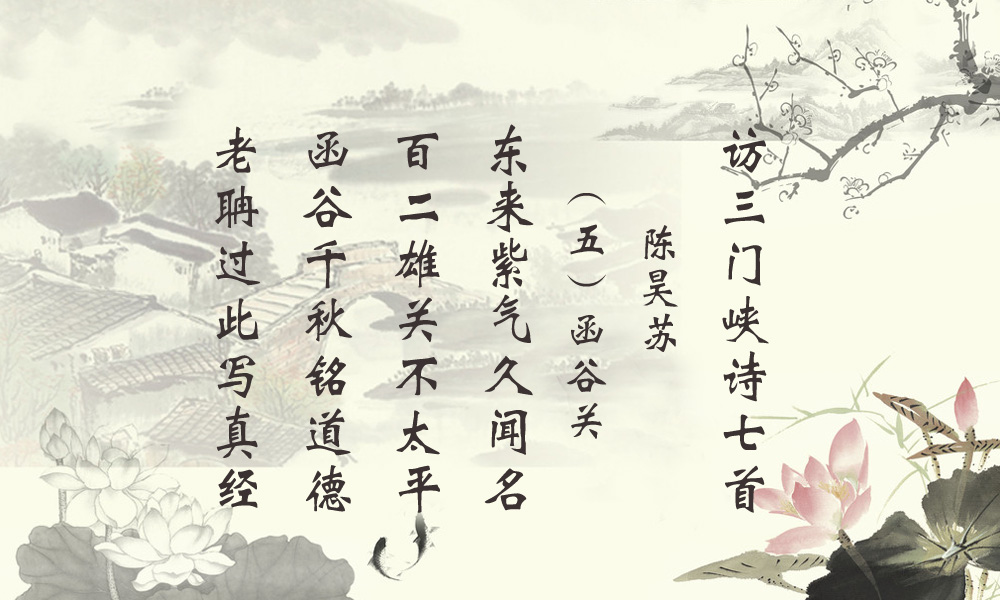 访三门峡诗七首
陈昊苏
（五）函谷关
东来紫气久闻名
百二雄关不太平
函谷千秋铭道德
老聃过此写真经